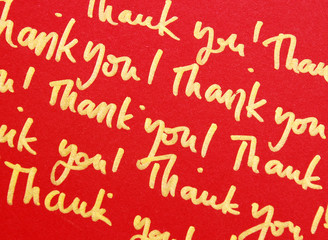 Thank you! Thank
Thank you! Thank you!
you! Thank you! Thank
Thank you! Thank you!
Thank you! Thank you!